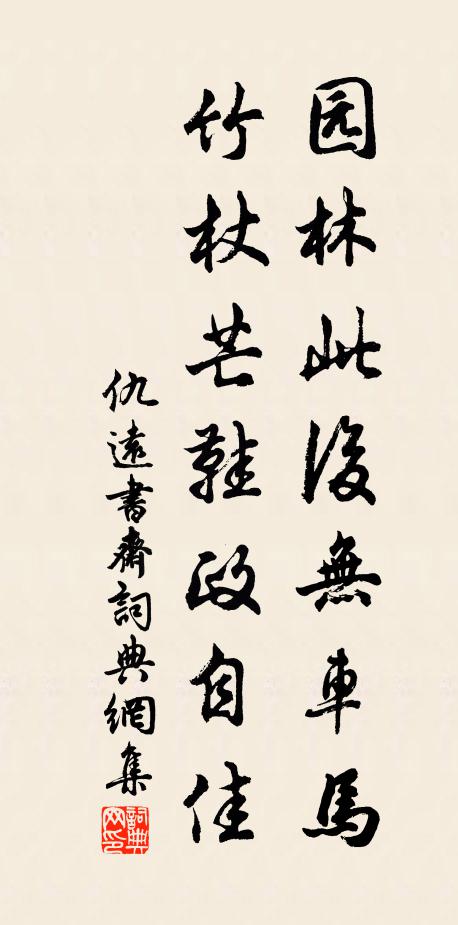 园林此後無車馬
竹杖芒鞋政自佳
仇遠書齋詞典網集
詞典網印